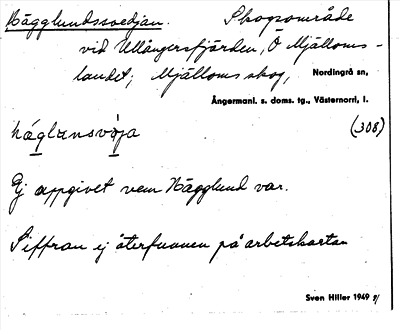 Häggglundssvedjan. Skogsområde
vid Ullångersfjärden, Ö Mjälloms-
landet; Mjälloms skog, Nordingrå sn,
Ångermanl. s. doms. tg., Västernorrl, l.
hág̣lunsvø̣ja (308)
Ej uppgivet vem Hägglund var.
Siffran ej återfunnen på arbetskartan
Sven Hiller 1949